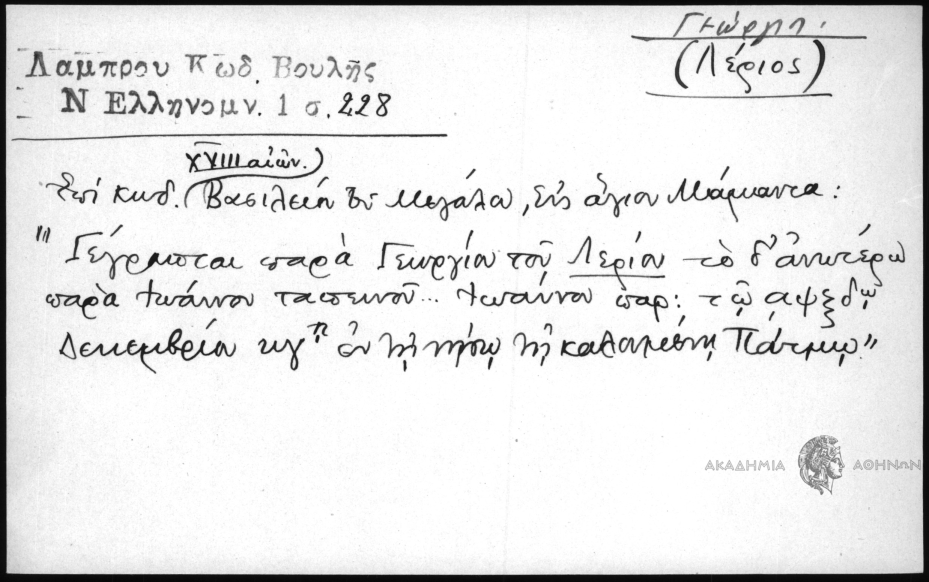 Γεώργιο.
(Λέριος)
Λαμπρου Κωδ. Βουλῆς
Ν Ελληνομν. 1 σ. 228
XVIII αἰών.)
Ἐπὶ κωδ. (Βασιλείου τοῦ Μεγάλου, εἰς ἅγιον Μάμαντα:
"Γέγραπται παρὰ Γεωργίου τοῦ Λερίου τὸ δ' ἀνωτέρω
παρὰ Ἰωάννου ταπεινοῦ... Ἰωάννου παρ: τῷ αψξδῳ
Δεκεμβρίου κγῃ ἐν τῇ νήσῳ τῇ καλουμένῃ Πάτμῳ"
ΑΚΑΔΗΜΙΑ ΑΘΗΝΩΝ